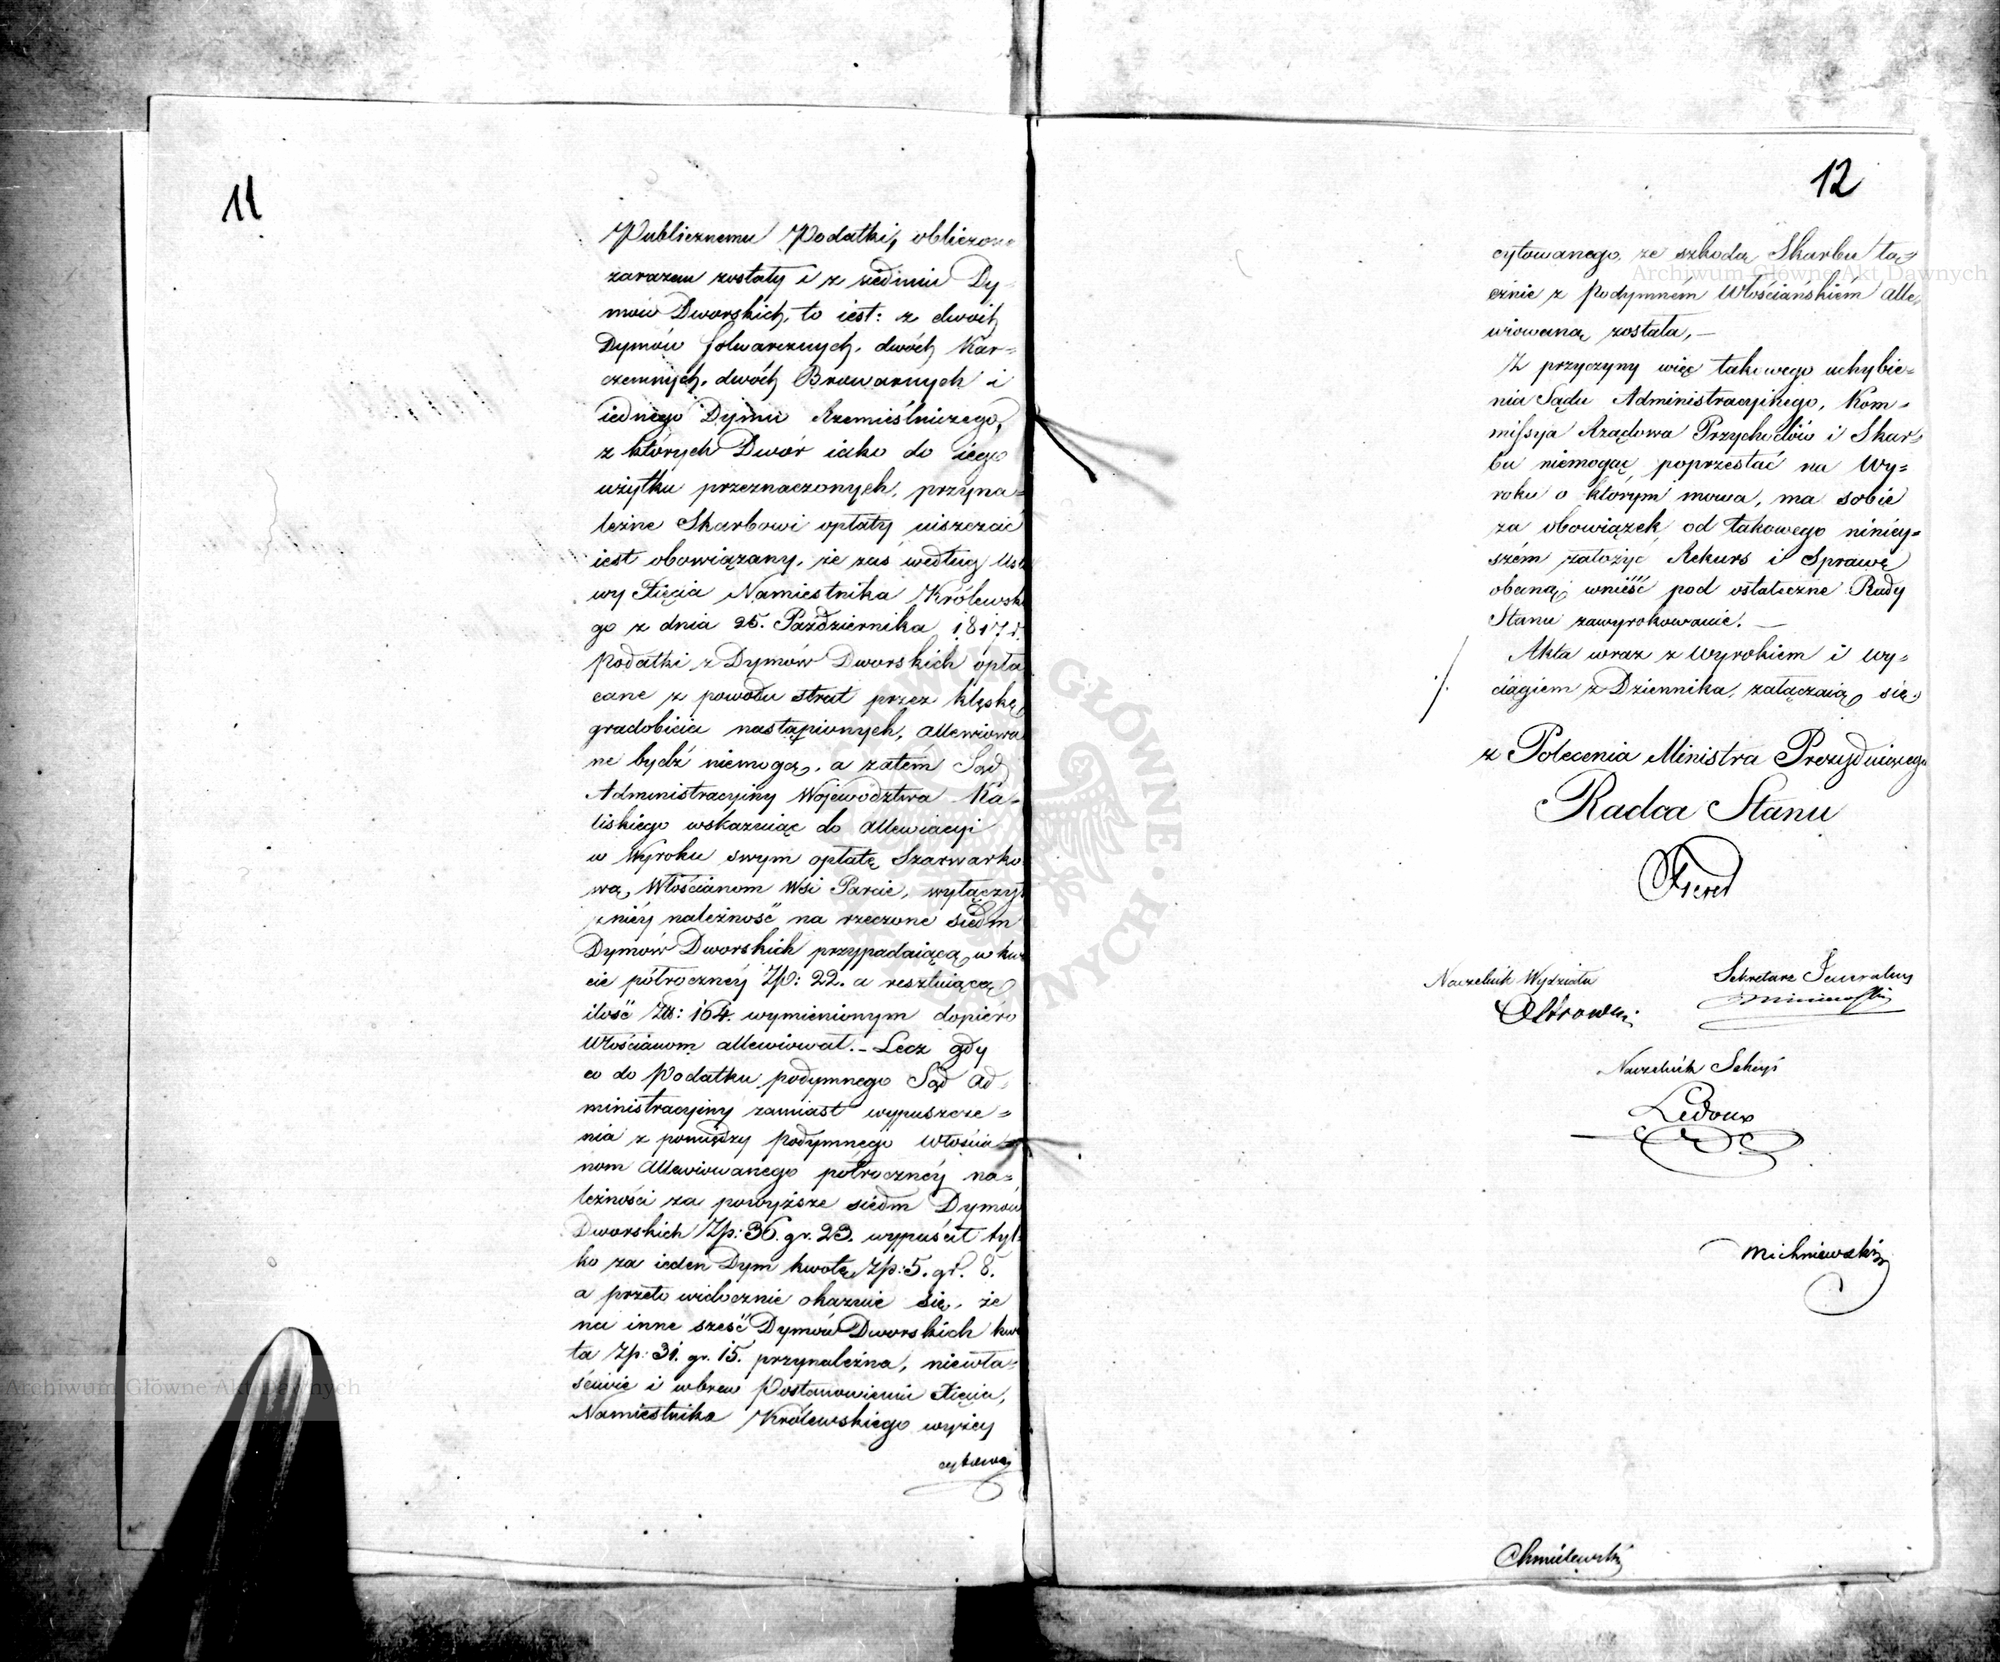 11
Publicznemu Podatki, obliczone
zarazem zostały i z siedmiu Dy-
mów Dworskich, to iest: z dwóch
Dymów folwarcznych, dwóch Kar-
czemnych, dwóch Browarnych i
iednego Dymu Rzemieślniczego,
z których Dwór iako do iego
użytku przeznaczonych, przyna-
leżne Skarbowi opłaty uiszczać
iest obowiązany, że zaś według Usta
wy Xięcia Namiestnika Królewskie
go z dnia 25. Października 1817 r.
Podatki z Dymów Dworskich opła
cane z powodu strat przez klęskę
gradobicia nastąpionych, allewiowa
ne bydź niemogą, a zatém Sąd
Administracyjny Województwa Ka-
liskiego wskazuiąc do allewiacyi
w Wyroku swym opłatę Szarwarko
wą, Włościanom Wsi Parcie, wyłączył
z niéy należność na rzeczone siedm
Dymów Dworskich przypadaiącą w kwo
cie półrocznéy Zp: 22. a resztuiącą
ilość Złł: 164. wymienionym dopiéro
Włościanom allewiował. – Lecz gdy
co do Podatku podymnego Sąd Ad-
ministracyjny zamiast wypuszcze-
nia z pomiędzy Podymnego Włościa
nom allewiowanego półrocznéy na-
leżności za powyższe siedm Dymów
Dworskich Zp: 36. gr. 23. wypuścił tyl-
ko za ieden Dym kwotę Zp: 5. gr. 8.
a przeto widocznie okazuie się, że
na inne sześć Dymów Dworskich kwo
ta Zp: 31. gr. 15. przynależna, niewła-
ściwie i wbrew Postanowieniu Xięcia,
Namiestnika Królewskiego wyżéy
cytowa
12
cytowanego, ze szkodą Skarbu łą-
cznie z Podymném Włościańskiém alle-
wiowaną została, –
Z przyczyny więc takowego uchybie-
nia Sądu Administracyinego, Kom-
missya Rządowa Przychodów i Skar-
bu niemogąc poprzestać na Wy-
roku o którym mowa, ma sobie
za obowiązek od takowego niniey-
szém założyć Rekurs i Sprawę
obecną wnieść pod ostateczne Rady
Stanu zawyrokowanie. –
Akta wraz z Wyrokiem i Wy-
ciągiem z Dziennika, załączaią się.
z Polecenia Ministra Prezyduiącego
Radca Stanu
Naczelnik Wydziału
Sekretarz Generalny
Naczelnik Sekcyi
Ledoux
Michniewski
Chmielewski
Archiwum Główne Akt Dawnych
Archiwum Główne Akt Dawnych